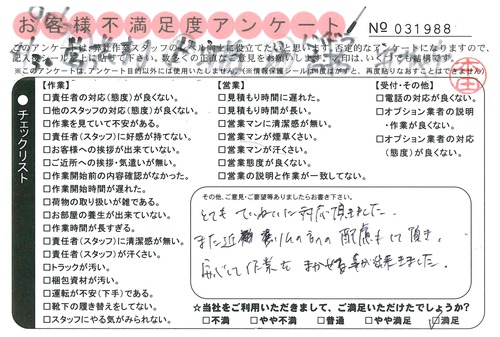 お客様不満足度アンケート
№ 031988
このアンケートは、弊社作業スタッフのレベル向上に役立てたいと思います。否定的なアンケートになりますので、
記入後シールを貼って下さい。数多くの正直なご意見をお願いします。
※このアンケートは、アンケート目的以外には使用いたしません。(※情報保護シールに関してはがすと、再度貼りなおすことはできません)
チェックリスト
【作業】
□責任者の対応(態度)が良くない。
□他のスタッフの対応(態度)が良くない。
□作業を見ていて不安がある。
□責任者(スタッフ)に好感が持てない。
□お客様への挨拶が出来ていない。
□ご近所への挨拶・気遣いが無い。
□作業開始前の内容確認がなかった。
□作業開始時間が遅れた。
□荷物の取り扱いが雑である。
□お部屋の養生が出来ていない。
□作業時間が長すぎる。
□責任者(スタッフ)に清潔感が無い。
□責任者(スタッフ)が汗くさい。
□トラックが汚い。
□梱包資材が汚い。
□運転が不安(下手)である。
□靴下の履き替えをしてない。
□スタッフにやる気がみられない。
【営業】
□見積もり時間に遅れた。
□見積もり時間が長い。
□営業マンに清潔感が無い。
□営業マンが煙草くさい。
□営業マンが汗くさい。
□営業態度が良くない。
□営業の説明と作業が一致してない。
【受付・その他】
□電話の対応が良くない。
□オプション業者の説明
・作業が良くない。
□オプション業者の対応
(態度)が良くない。
その他、ご意見・ご要望等ありましたらお書き下さい。
とてもていねいに対応頂きました。
また近隣の方への配慮もして頂き、
安心して作業をまかせる事が出来ました。
☆当社をご利用いただきまして、ご満足いただけたでしょうか?
□不満 □やや不満 □普通 □やや満足 ☑満足